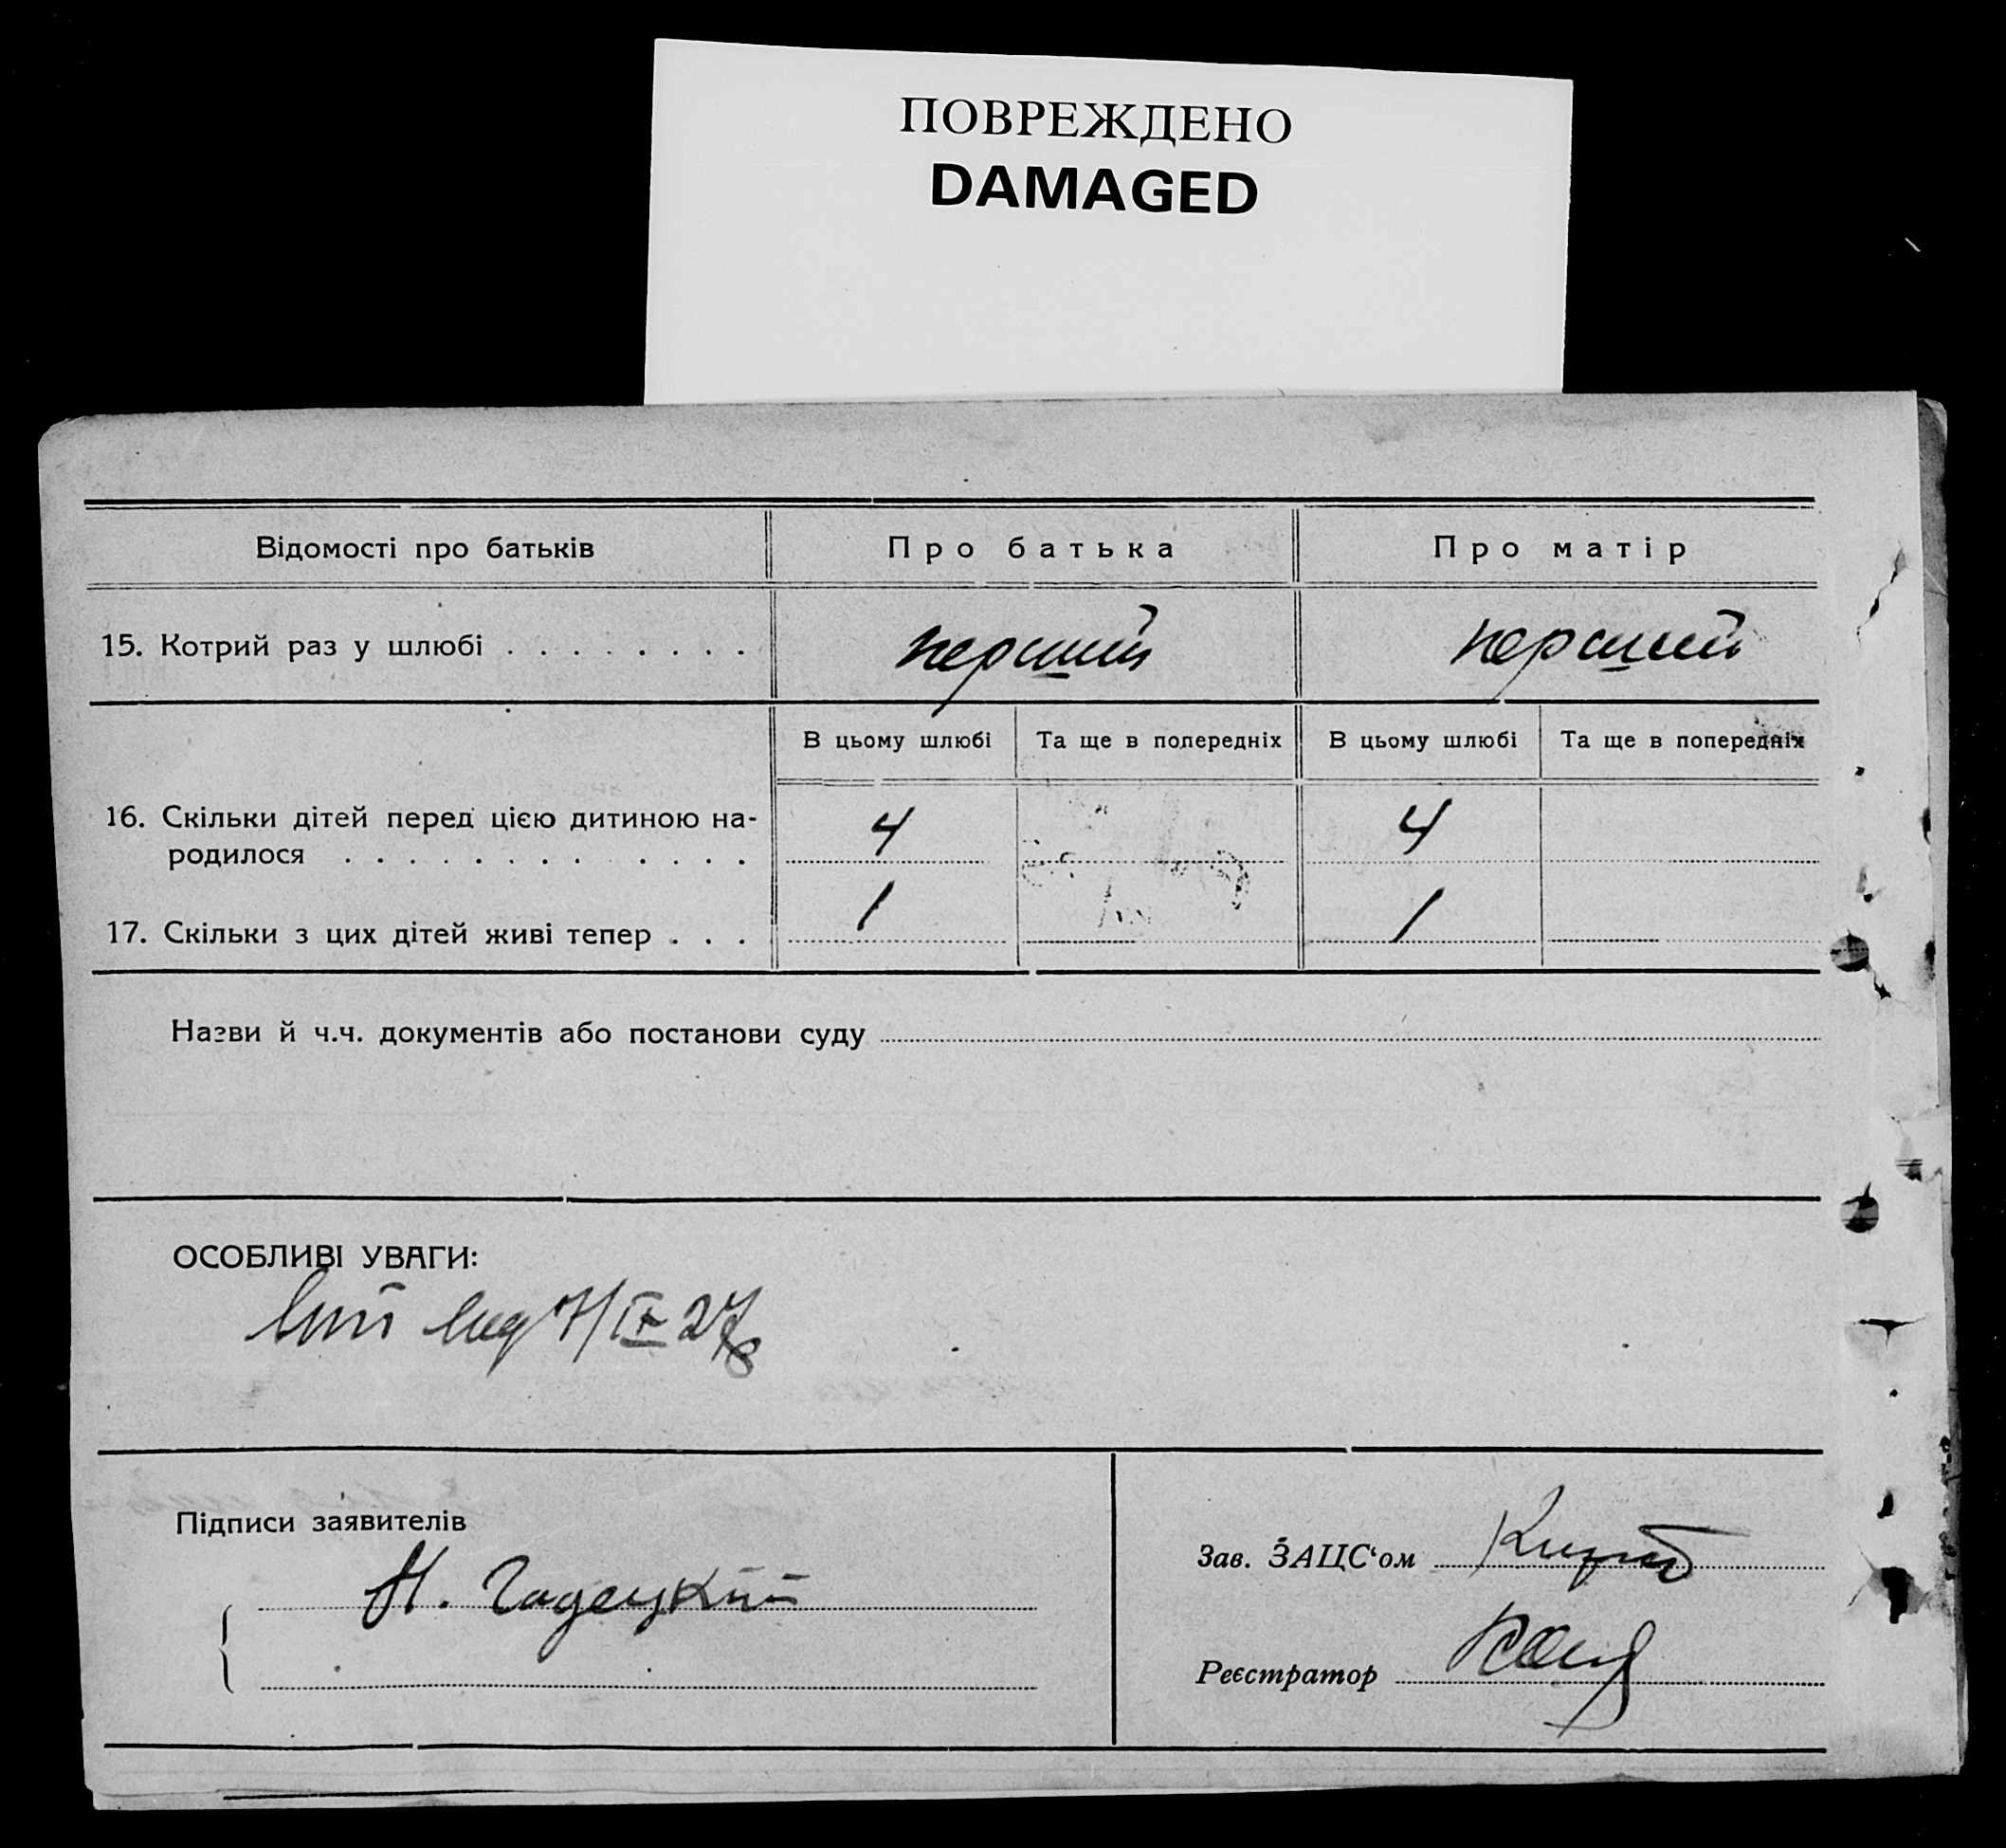 ПОВРЕЖДЕНО
DAMAGED
Відомості про батьків
Про батька
Про матір
15. Котрий раз у шлюбі . . . . . . . .
перший
перший
В цьому шлюбі
Та ще в попередніх
В цьому шлюбі
Та ще в попередніх
16. Скільки дітей перед цією дитиною на-
родилося . . . . . . . . . . . . .
4
4
17. Скільки з цих дітей живі тепер . . .
1
1
Назви й ч.ч. документів або постанови суду
ОСОБЛИВІ УВАГИ:
7/IX 27
Підписи заявителів
Зав. ЗАЦС‘ом
Гадецкий
Реєстратор